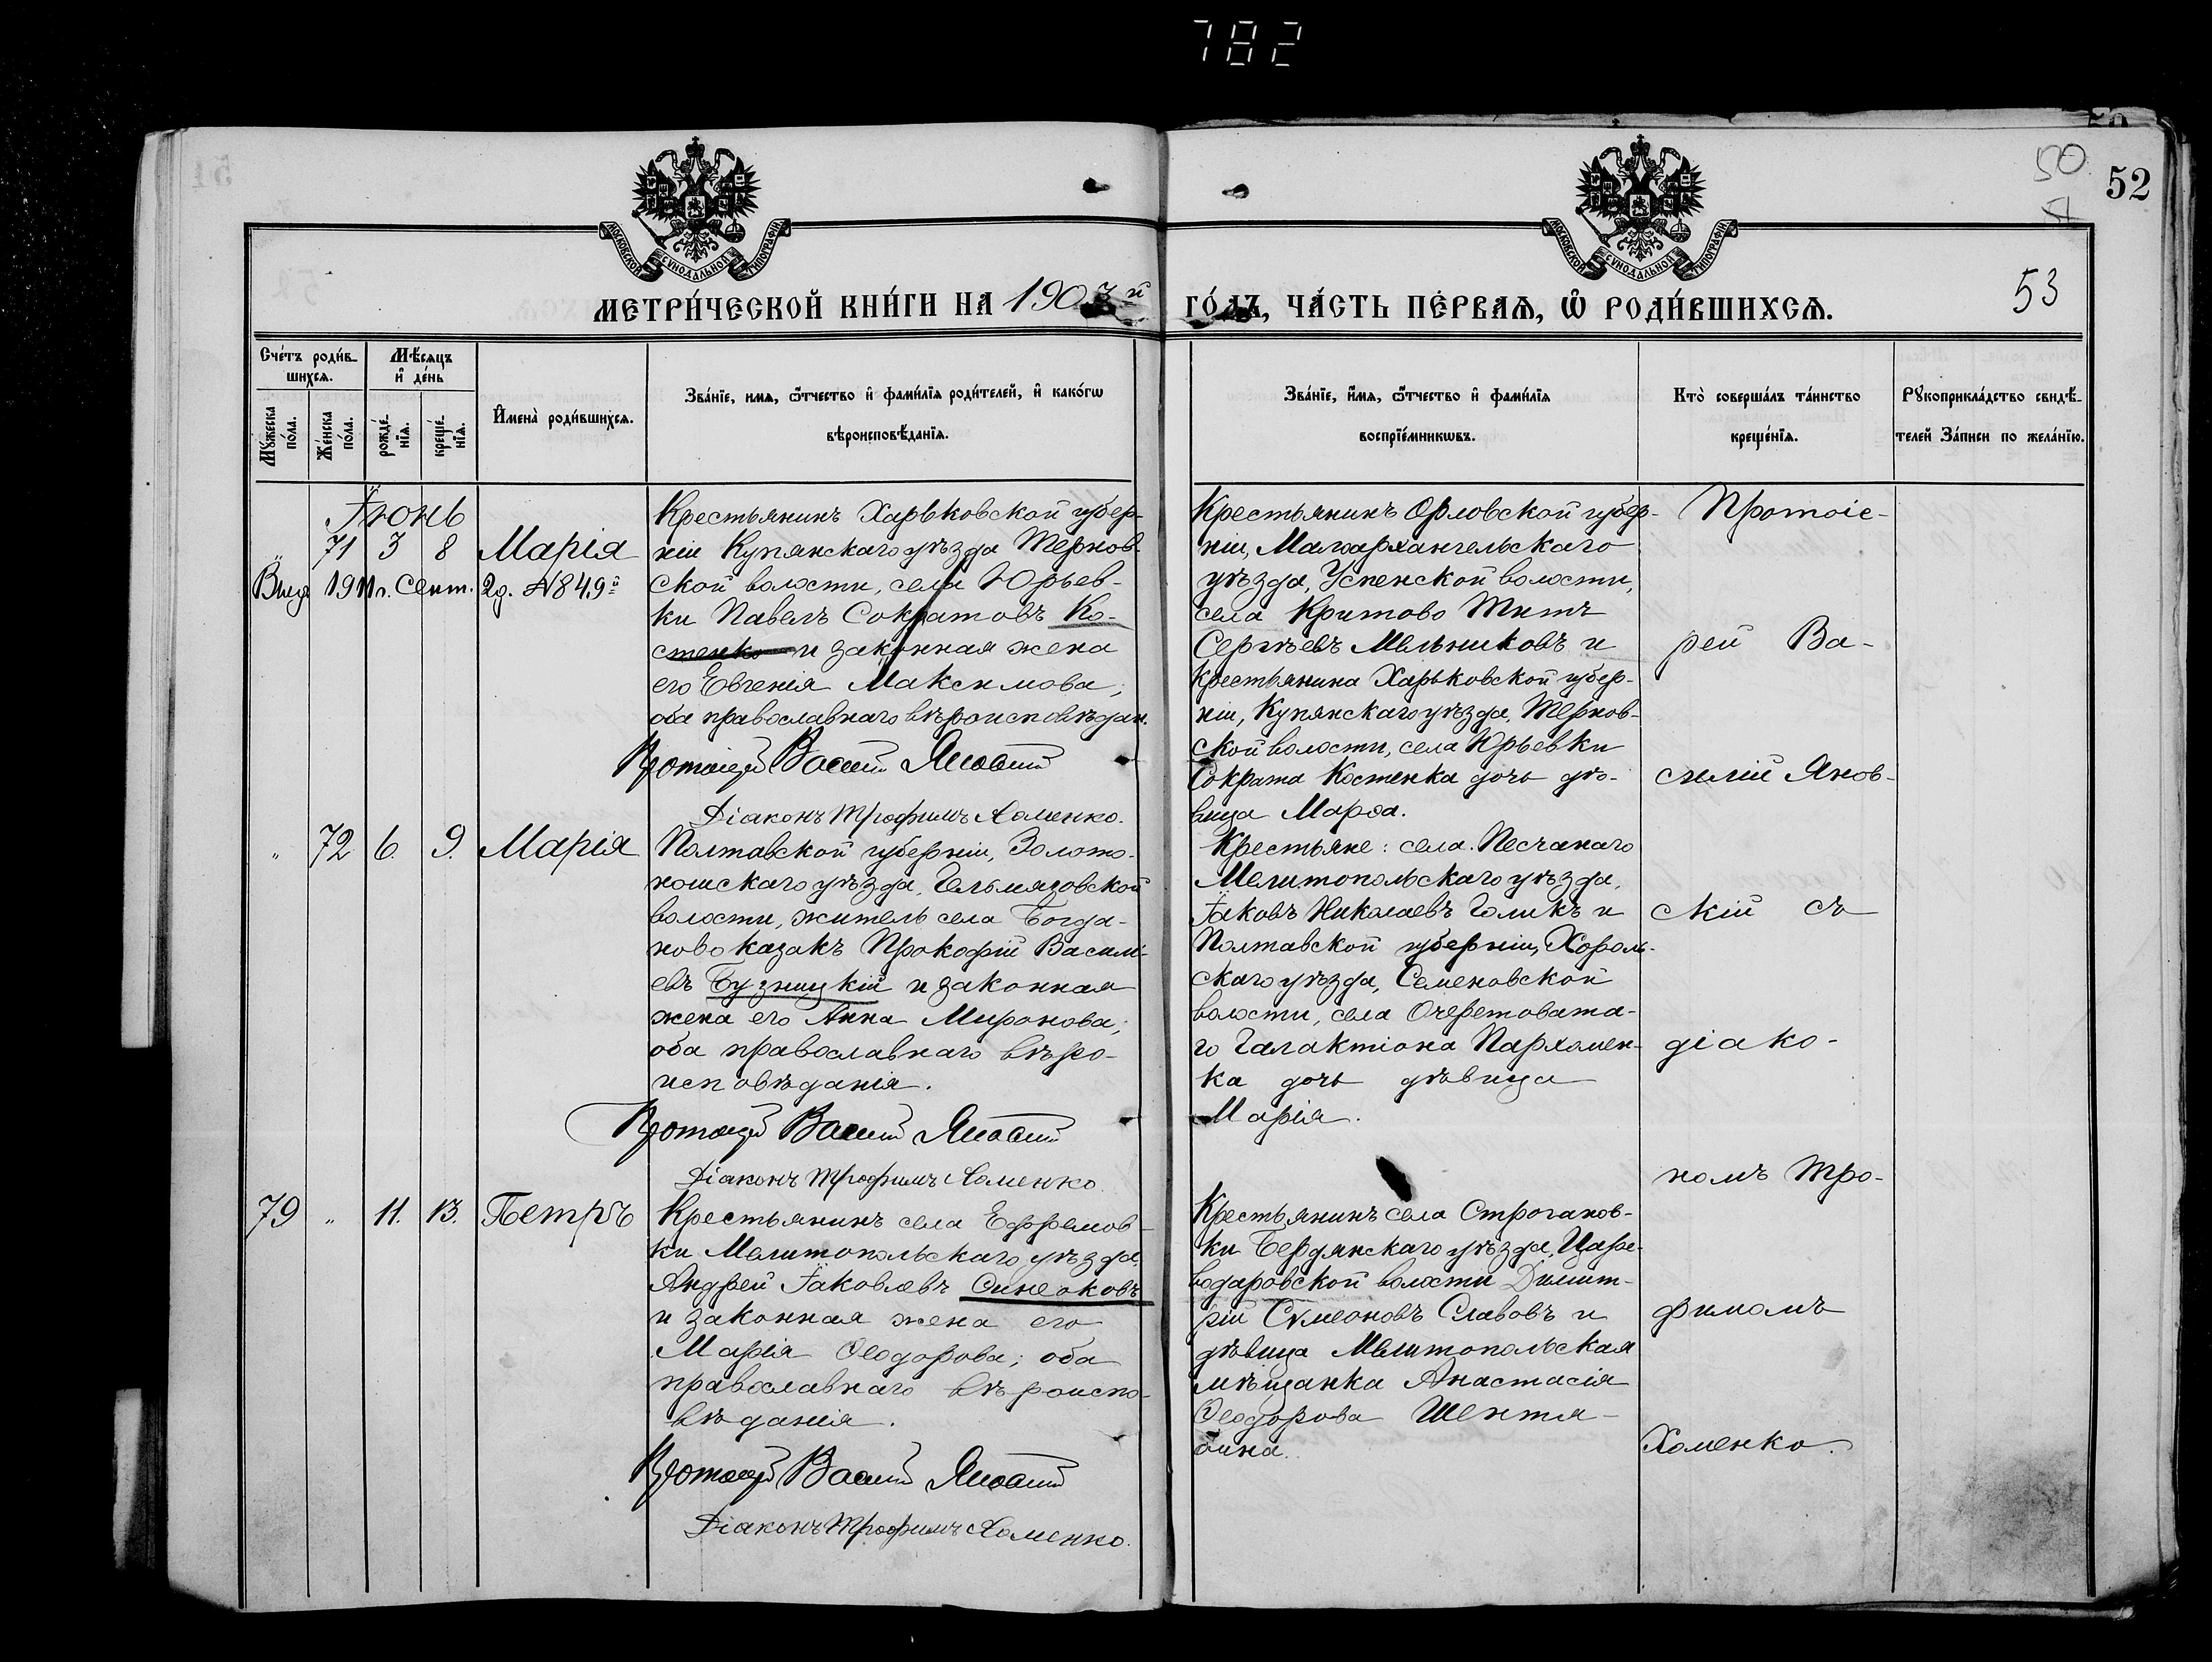 782
50
52
51
53
МОСКОВСКОЙ СѴНОДАЛЬНОЙ ТИПОГРАФІИ
МОСКОВСКОЙ СѴНОДАЛЬНОЙ ТИПОГРАФІИ
МЕТРИ́ЧЕСКОЙ КНИ́ГИ НА 1903й ГО́ДЪ, ЧА́СТЬ ПЕ́РВАѦ, Ѽ РОДИ́ВШИХСѦ.
Сче́тъ роди́вшихсѧ.
Мѣ́сѧцъ и҆ де́нь
Мꙋ́жеска по́ла.
Же́нска по́ла.
рожде́нїѧ.
креще́нїѧ.
И҆мена̀ роди́вшихсѧ.
Зва́нїе, имѧ, ѻ҆́тчество и҆ фами́лїѧ роди́телей, и҆ како́гѡ
вѣроисповѣ́данїѧ.
Зва́нїе, и҆́мѧ, ѻ҆́тчество и҆ фами́лїѧ
воспрїе́мникѡвъ.
Кто̀ соверша́лъ та́инство
креще́нїѧ.
Рꙋкоприкла́дство свидѣ́-
телей За́писи по жела́нїю.
Іюнь
" 71 3 8 Марія
Выд. 1911 г. Сент. 2 д. №849
Крестьянинъ Харьковской губер-
ніи Купянскаго уѣзда Тернов-
ской волости, села Юрьев-
ки Павелъ Сократовъ Ко-
стенко и законная жена
его Евгенія Максимова;
оба православнаго вѣроисповѣдан.
Протоіерей Василій Яновскій
Діаконъ Трофимъ Хоменко.
Крестьянинъ Орловской губер-
ніи, Малоархангельскаго
уѣзда, Успенской волости,
села Критово Титъ
Сергѣевъ Мельниковъ и
крестьянина Харьковской губер-
ніи, Купянскаго уѣзда, Тернов-
ской волости, села Юрьевки
Сократа Костенка дочь дѣ-
вица Марѳа.
" 72 6. 9. Марія
Полтавской губерніи, Золото-
ношскаго уѣзда, Гельмязовской
волости, житель села Богда-
ново казакъ Прокофій Василі-
евъ Бузницкій и законная
жена его Анна Миронова;
оба православнаго вѣро-
исповѣданія.
Протоіерей Василій Яновскій
Діаконъ Трофимъ Хоменко
Крестьяне: села Песчанаго
Мелитопольскаго уѣзда,
Іаковъ Николаевъ Голикъ и
Полтавской губерніи, Хороль-
скаго уѣзда, Семеновской
волости, села Очеретовата-
го Галактіона Пархомен-
ка дочь дѣвица
Марія.
79 " 11. 13. Петръ
Крестьянинъ села Ефремов-
ки Мелитопольскаго уѣзда,
Андрей Іаковлевъ Синеоковъ
и законная жена его
Марія Ѳеодорова; оба
православнаго вѣроиспо-
вѣданія.
Протоіерей Василій Яновскій
Діаконъ Трофимъ Хоменко.
Крестьянинъ села Строганов-
ки Бердянскаго уѣзда, Царе-
водаровской волости Димит-
рій Сѵмеоновъ Славовъ и
дѣвица Мелитопольская
мѣщанка Анастасія
Ѳеодорова
Протоіе-
рей Ва-
силій Янов-
скій съ
діако-
номъ Тро-
фимомъ
Хоменко.